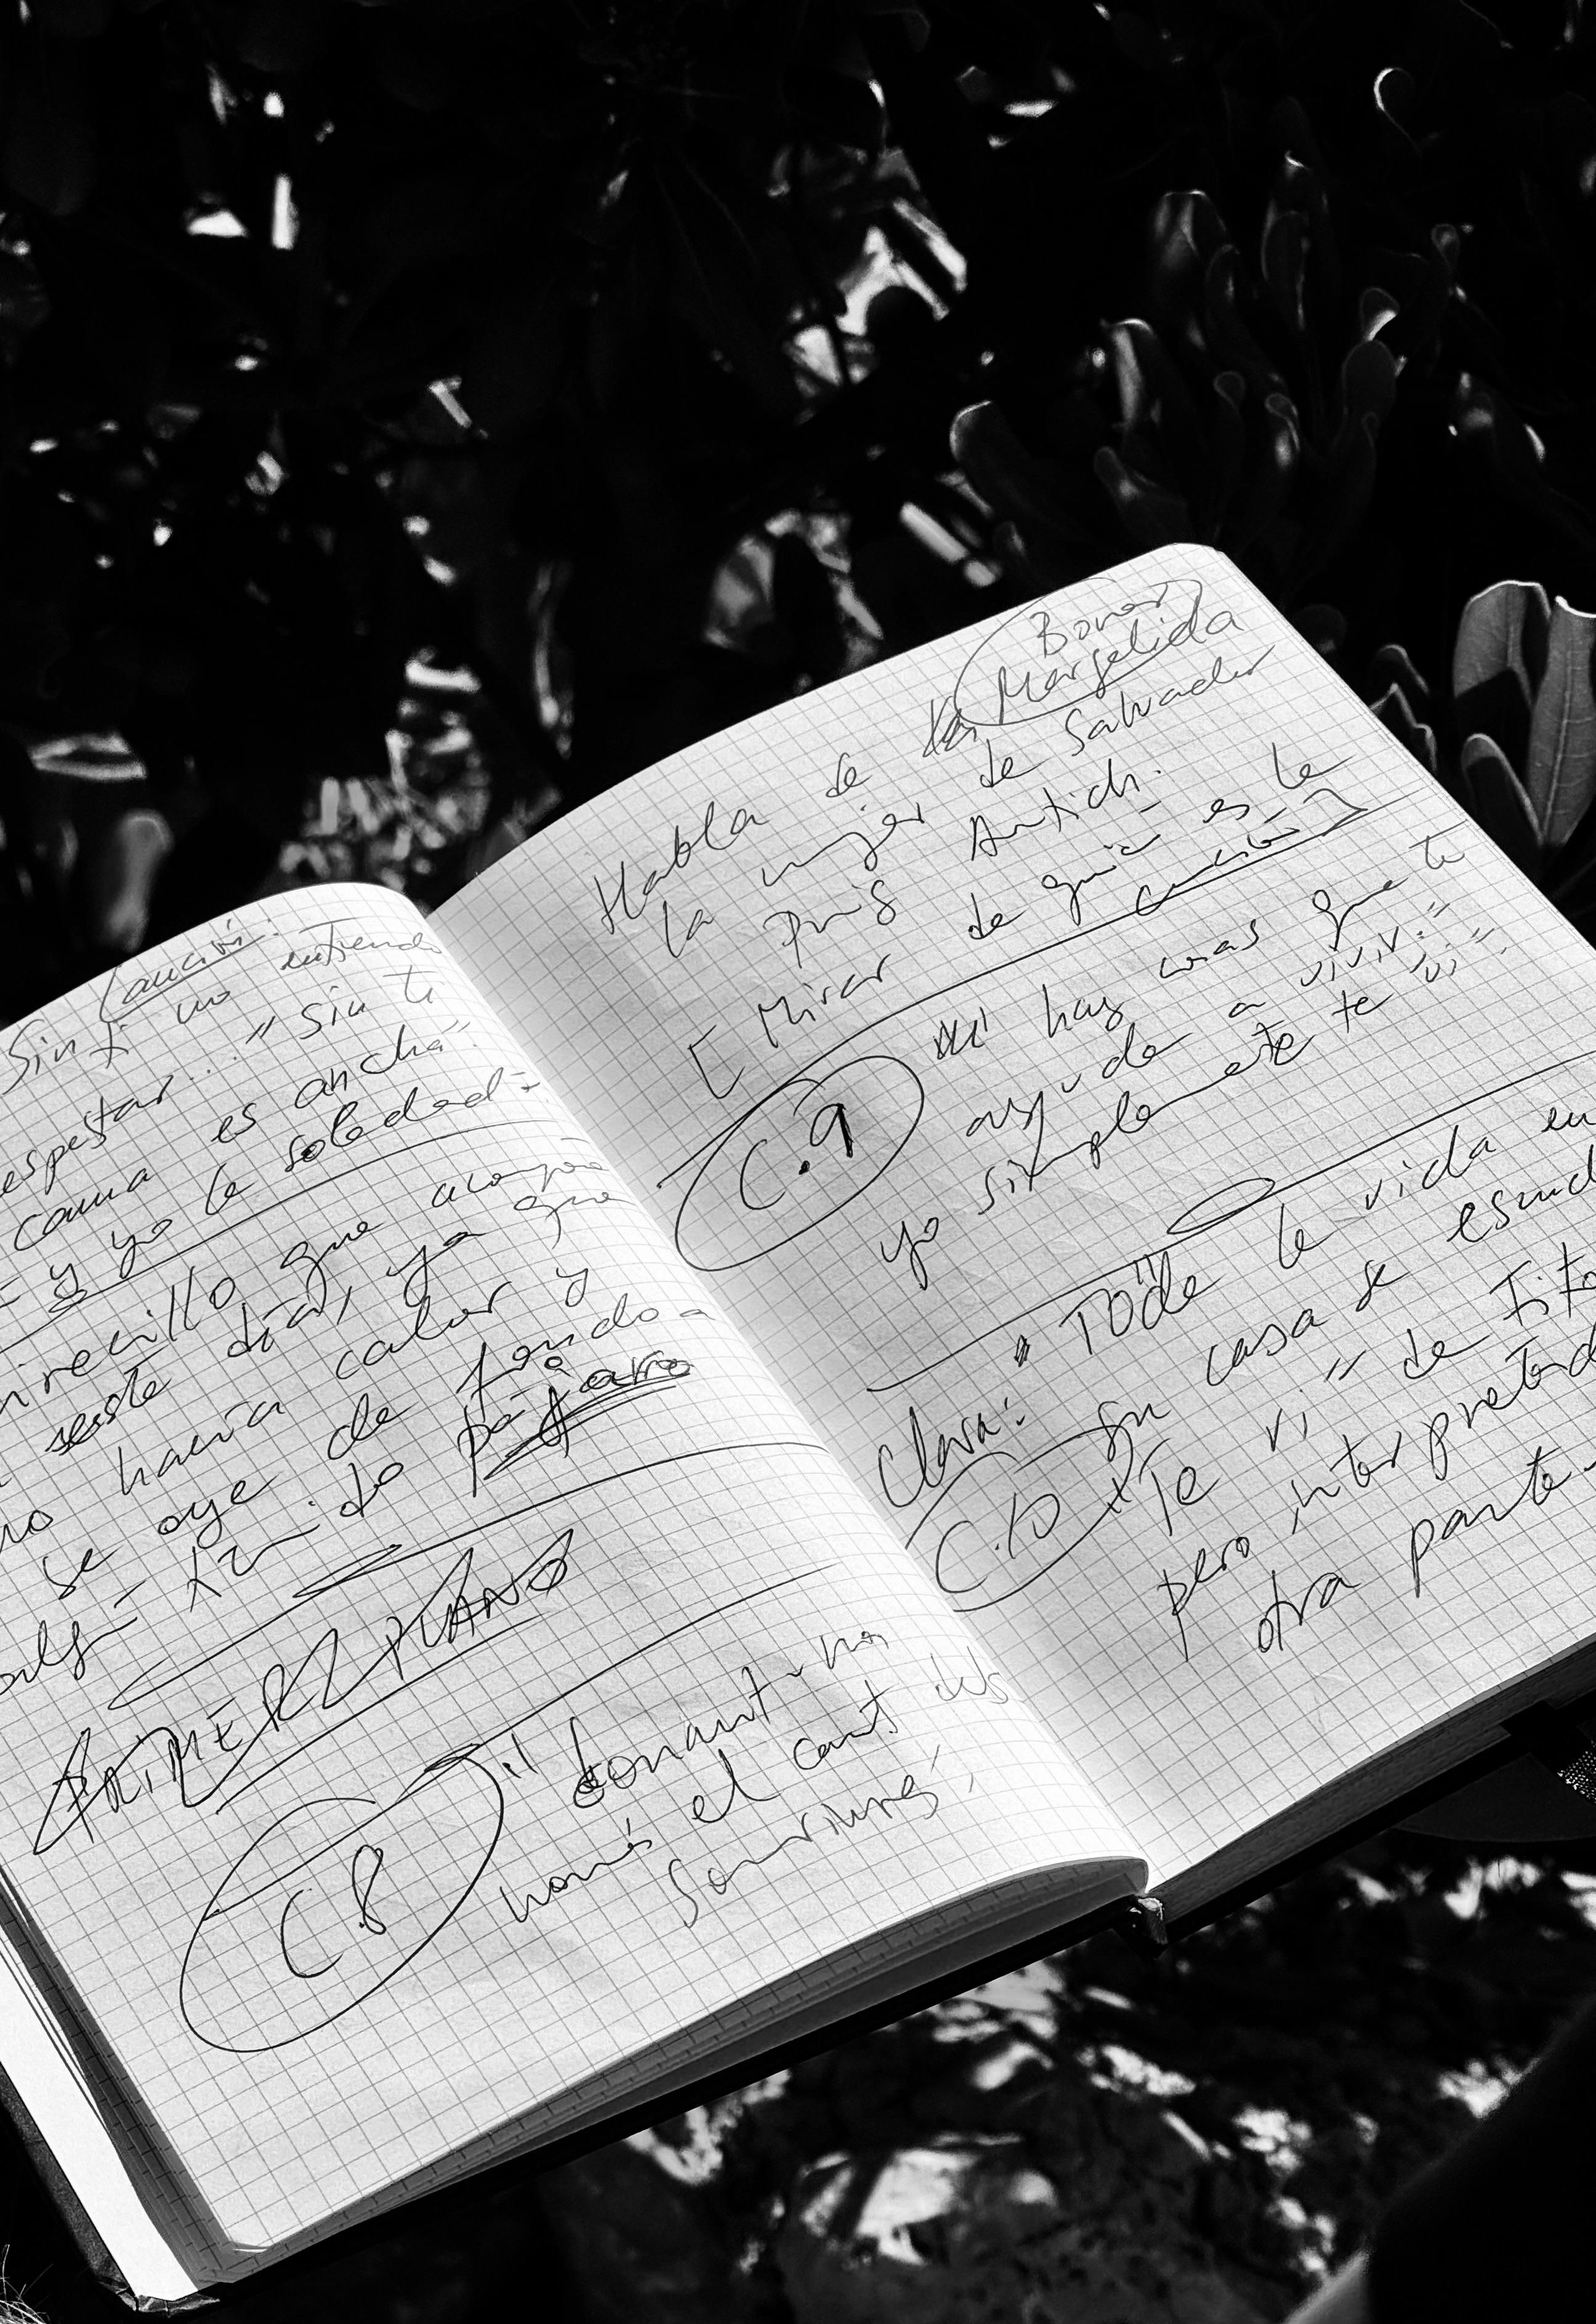 Canción:
Sin ti no entiendo
despertar... "Sin ti
cama es ancha".
= y yo la soledad =
airecillo que acompa
este día, ya que
no hacía calor y
se oye de fondo a
algún tímido pájaro
PRIMER PLANO
C.8 "donant-nos
només el cant dels
somriures",
Bonar
Habla de la Margalida
la mujer de Salvador
Puig Antich.
[Mirar de quién es la
canción]
C.9 hay cosas que te
ayudan a vivir:"
yo simplemente te vi".
Clara: "Toda la vida en
su casa se escuch
C.10 "Te vi" de Fito
pero interpretad
otra parte.